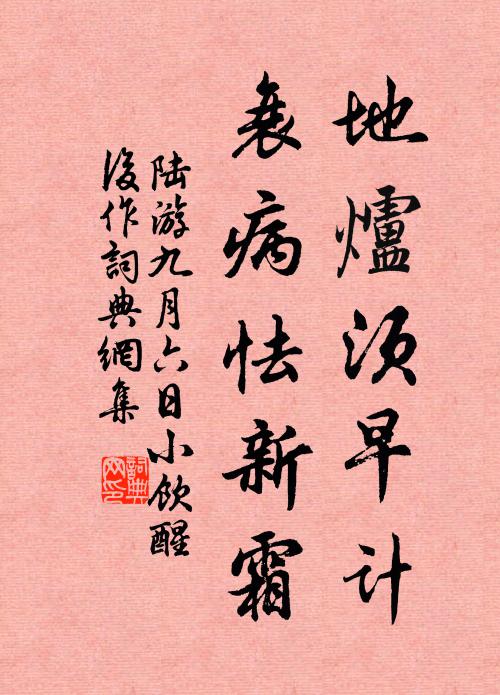 地爐須早計
衰病怯新霜
陆游九月六日小飲醒
後作詞典網集
詞典网印